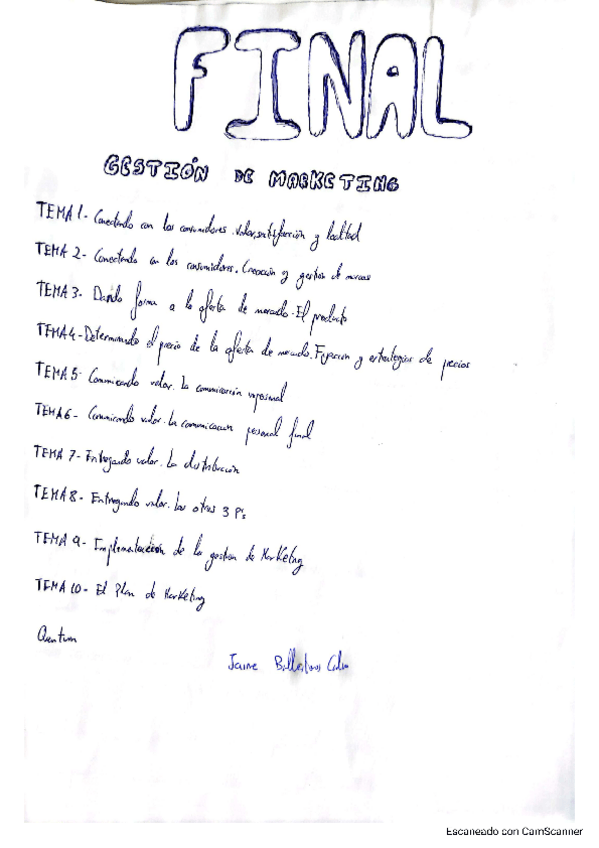 FINAL
GESTIÓN DE MARKETING
TEMA 1- Conectando con los consumidores. Valor, satisfacción y lealtad
TEMA 2- Conectando con los consumidores. Creación y gestión de marcas
TEMA 3- Dando forma a la oferta de mercado. El producto
TEMA 4- Determinando el precio de la oferta de mercado. Fijación y estrategias de precios
TEMA 5- Comunicando valor. La comunicación impersonal
TEMA 6- Comunicando valor. La comunicación personal final
TEMA 7- Entregando valor. La distribución
TEMA 8- Entregando valor. Las otras 3 P's
TEMA 9- Implementación de la gestión de Marketing
TEMA 10- El Plan de Marketing
Quantum
Jaime
Escaneado con CamScanner